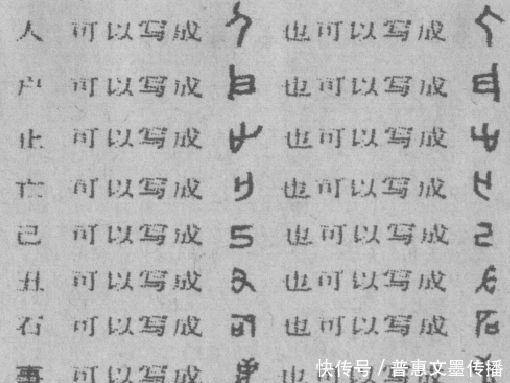 人 可以写成 也可以写成
户 可以写成 也可以写成
止 可以写成 也可以写成
亡 可以写成 也可以写成
己 可以写成 也可以写成
丑 可以写成 也可以写成
石 可以写成 也可以写成
事 可以写成 也可以写成
快传号/普惠文墨传播